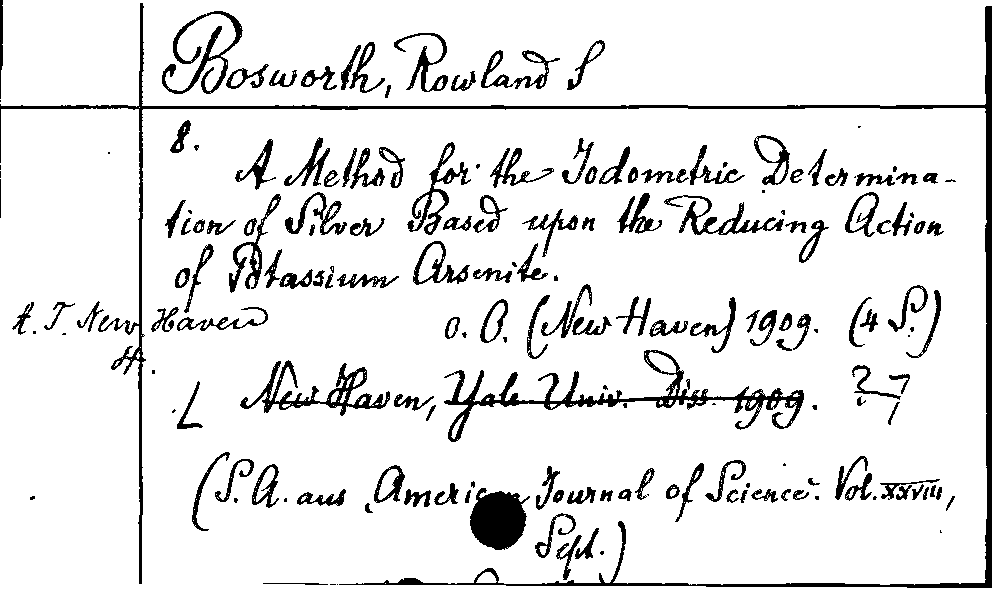 Bosworth, Rowland S
8.
A Method for the Iodometric Determina-
tion of Silver Based upon the Reducing Action
of Potassium Arsenite.
A. T. New Haven
o. O. (New Haven) 1909. (4 S.)
H.
L New Haven, Yale Univ. Diss. 1909. ?
(S. A. aus American Journal of Science. Vol. XXVIII,
Sept.)